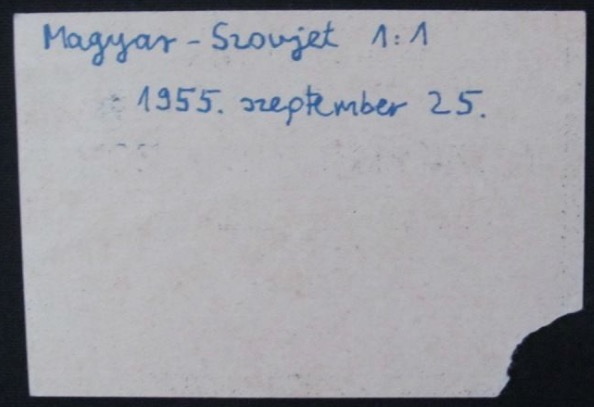 Magyar - Szovjet 1:1
1955. szeptember 25.